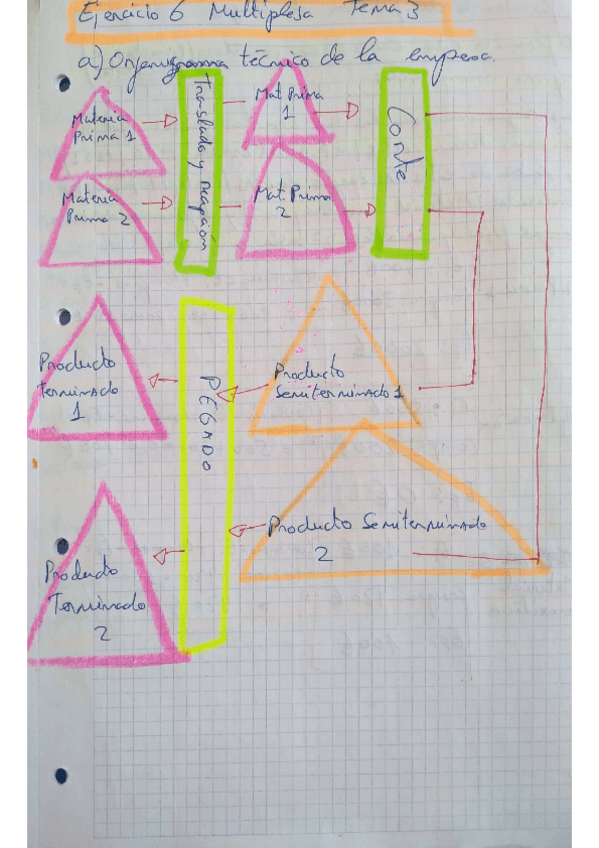 Ejercicio 6 Multiplesa Tema 3
a) Organigrama técnico de la empresa.
Materia
Prima 1
Traslado y recepción
Mat. Prima
1
Corte
Materia
Prima 2
Mat. Prima
2
Producto
terminado
1
PEGADO
Producto
Semiterminado 1
Producto Semiterminado
2
Producto
Terminado
2